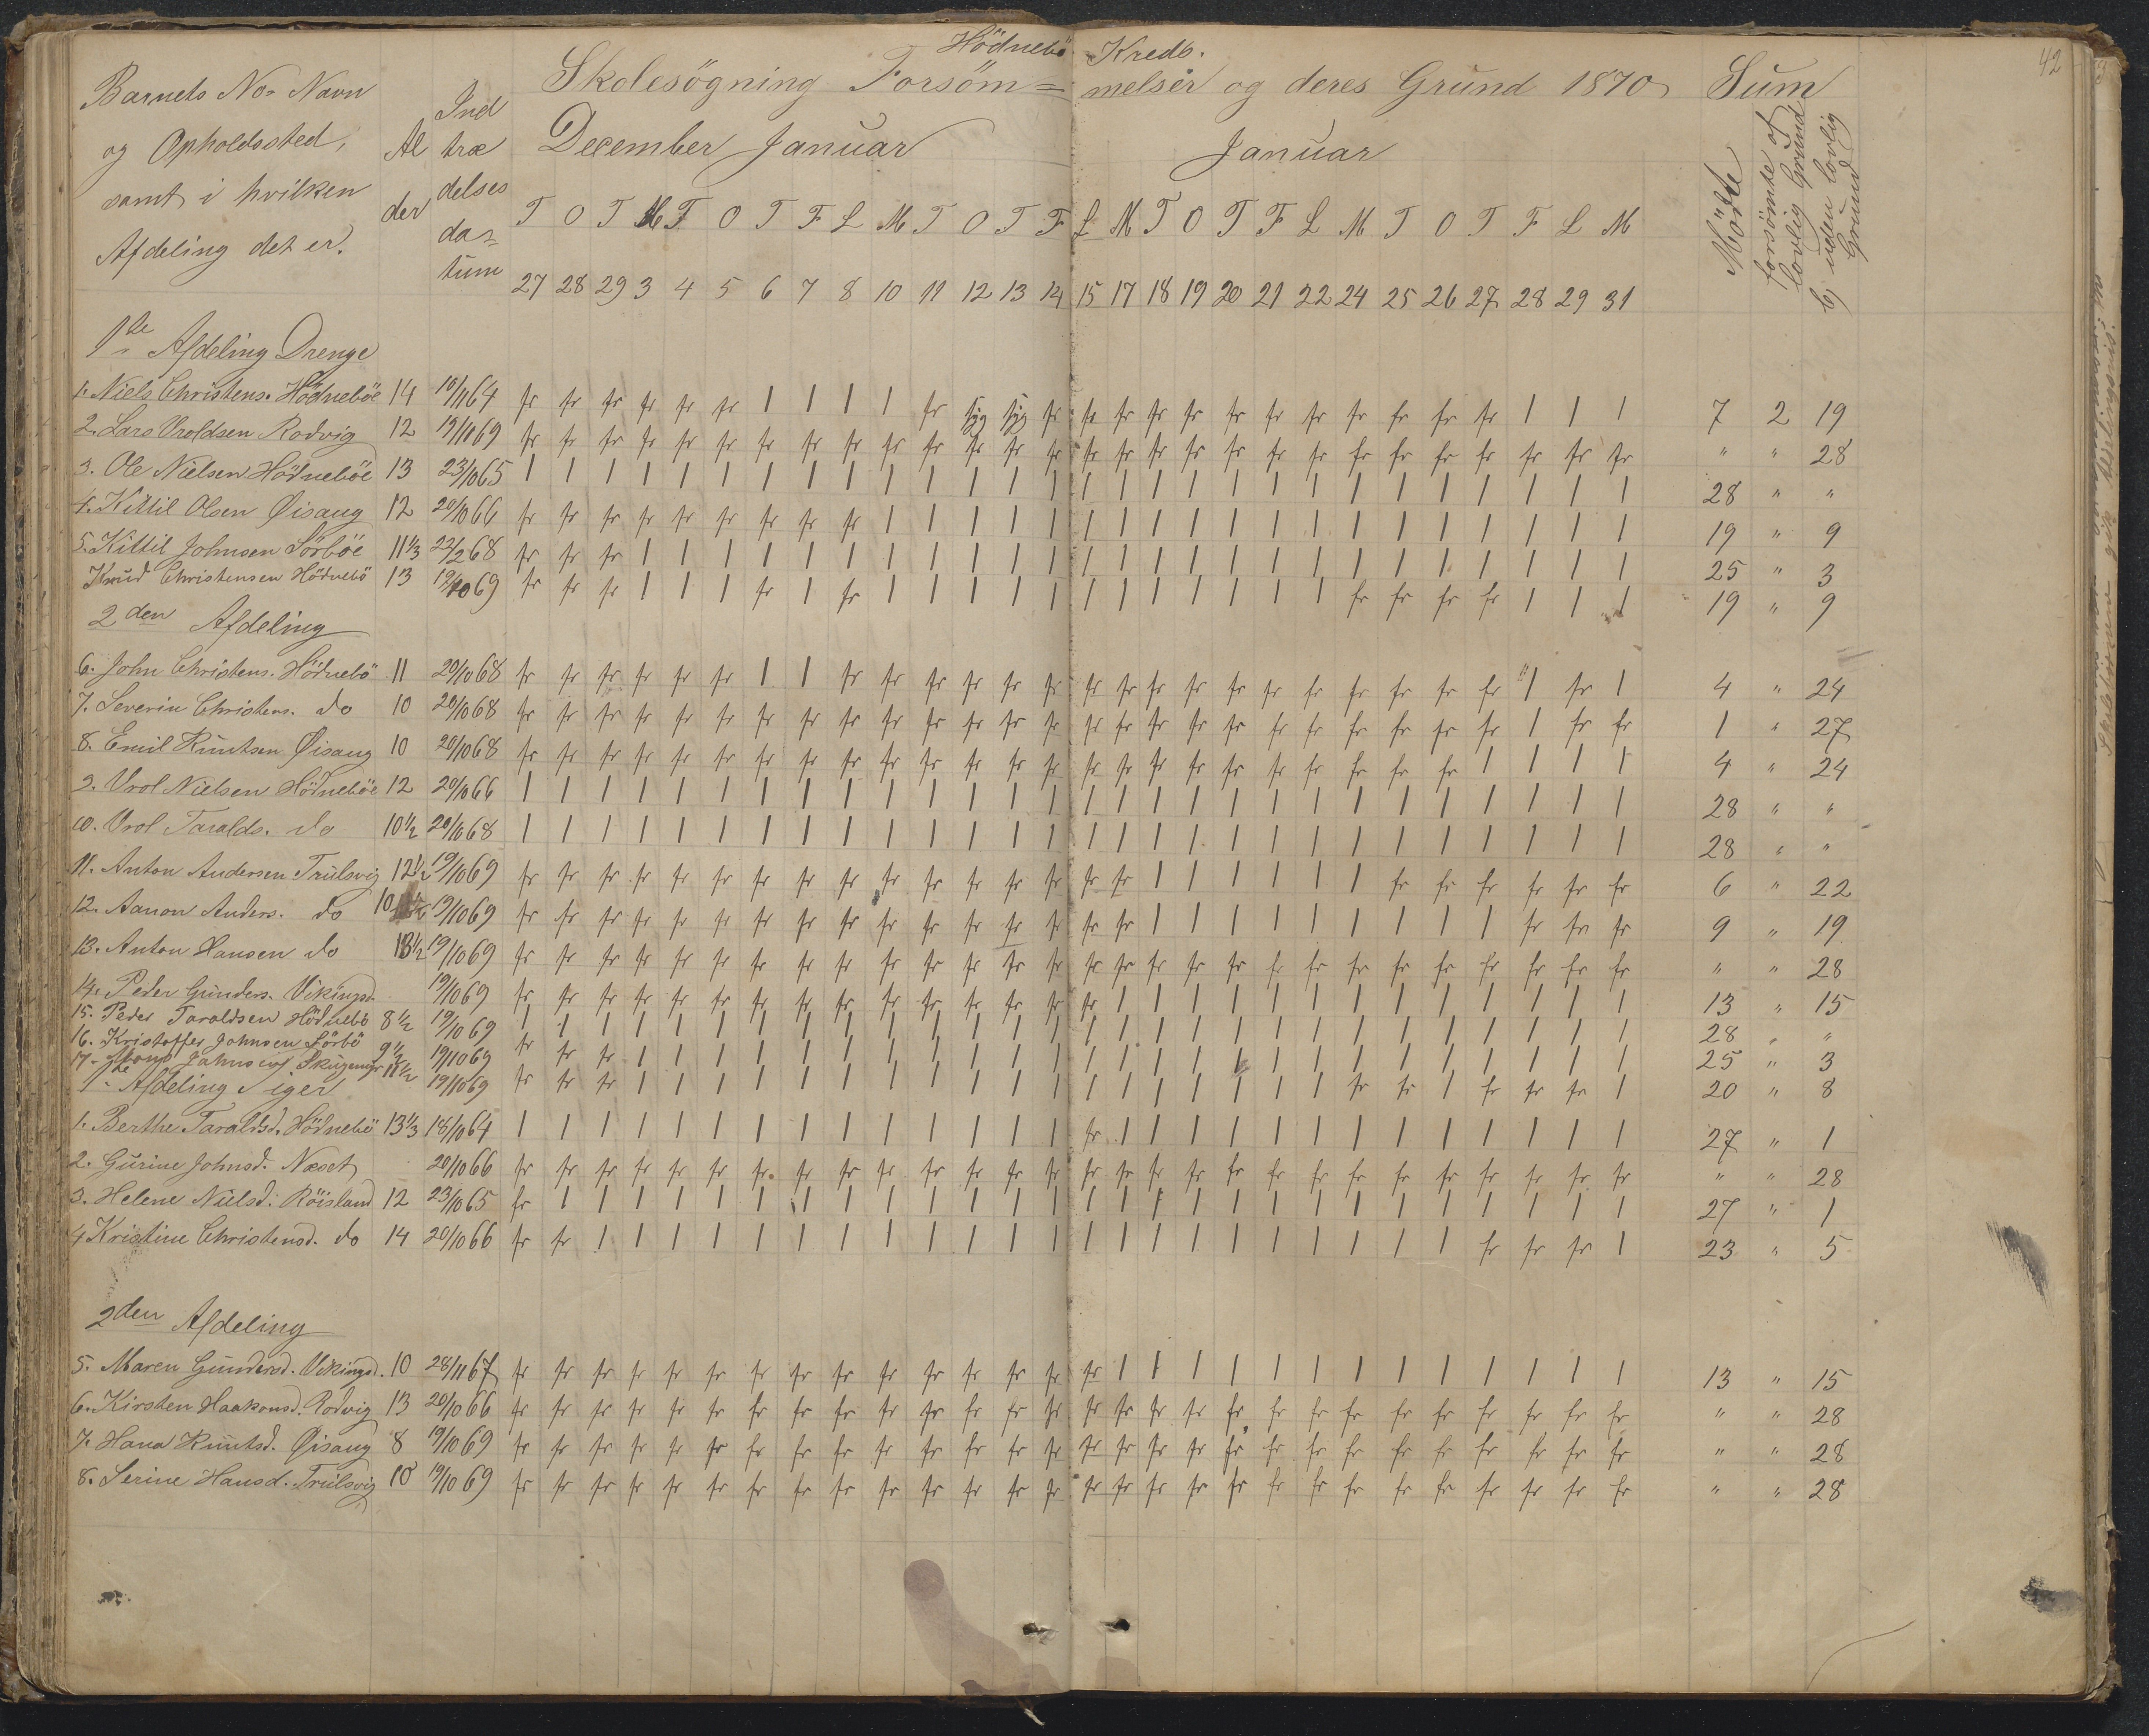 42
Hödnebö Kreds.
Skolesögning Forsöm= melser og deres Grund 1870 Sum
Barnets No. Navn
og Opholdssted,
samt i hvilken
Afdeling det er.
Al
der
Ind
træ
delses
da=
tum
December Januar Januar
Mötte
forsömte af
lovlig Grund
b) uden lovlig
Grund
T O T M T O T F L M T O T F L M T O T F L M T O T F L M
27 28 29 3 4 5 6 7 8 10 11 12 13 14 15 17 18 19 20 21 22 24 25 26 27 28 29 31
1ste Afdeling Drenge
1. Niels Christens. Hödneböe 14 10/11 64 fr fr fr fr fr fr 1 1 1 1 fr syg syg fr fr fr fr fr fr fr fr fr fr fr fr 1 1 1 7 2 19
2. Lars Vroldsen Rodvig 12 19/10 69 fr fr fr fr fr fr fr fr fr fr fr fr fr fr fr fr fr fr fr fr fr fr fr fr fr fr fr fr " " 28
3. Ole Nielsen Hödneböe 13 23/10 65 1 1 1 1 1 1 1 1 1 1 1 1 1 1 1 1 1 1 1 1 1 1 1 1 1 1 1 1 28 " "
4. Kittil Olsen Øisang 12 20/10 66 fr fr fr fr fr fr fr fr fr 1 1 1 1 1 1 1 1 1 1 1 1 1 1 1 1 1 1 1 19 " 9
5. Kittil Johnsen Sörböe 11 1/3 22/2 68 fr fr fr 1 1 1 1 1 1 1 1 1 1 1 1 1 1 1 1 1 1 1 1 1 1 1 1 1 25 " 3
Knud Christensen Hödnebö 13 19/10 69 fr fr fr 1 1 1 fr 1 fr 1 1 1 1 1 1 1 1 1 1 1 1 fr fr fr fr 1 1 1 19 " 9
2den Afdeling
6. John Christens. Hödnebö 11 20/10 68 fr fr fr fr fr fr 1 1 fr fr fr fr fr fr fr fr fr fr fr fr fr fr fr fr fr 1 fr 1 4 " 24
7. Severin Christens. do 10 20/10 68 fr fr fr fr fr fr fr fr fr fr fr fr fr fr fr fr fr fr fr fr fr fr fr fr fr 1 fr fr 1 " 27
8. Emil Knutsen Øisang 10 20/10 68 fr fr fr fr fr fr fr fr fr fr fr fr fr fr fr fr fr fr fr fr fr fr fr fr 1 1 1 1 4 " 24
9. Vrol Nielsen Hödneböe 12 20/10 66 1 1 1 1 1 1 1 1 1 1 1 1 1 1 1 1 1 1 1 1 1 1 1 1 1 1 1 1 28 " "
10. Vrol Taralds. do 10 1/2 20/10 68 1 1 1 1 1 1 1 1 1 1 1 1 1 1 1 1 1 1 1 1 1 1 1 1 1 1 1 1 28 " "
11. Anton Andersen Trulsvig 12 1/2 19/10 69 fr fr fr fr fr fr fr fr fr fr fr fr fr fr fr fr 1 1 1 1 1 1 fr fr fr fr fr fr 6 " 22
12. Aanon Anders. do 10 1/2 19/10 69 fr fr fr fr fr fr fr fr fr fr fr fr fr fr fr fr 1 1 1 1 1 1 1 1 1 fr fr fr 9 " 19
13. Anton Hansen do 13 1/2 19/10 69 fr fr fr fr fr fr fr fr fr fr fr fr fr fr fr fr fr fr fr fr fr fr fr fr fr fr fr fr " " 28
14. Peder Gunders. Vikingsd. 19/10 69 fr fr fr fr fr fr fr fr fr fr fr fr fr fr fr 1 1 1 1 1 1 1 1 1 1 1 1 1 13 " 15
15. Peder Taraldsen Hödnebö 8 1/2 19/10 69 1 1 1 1 1 1 1 1 1 1 1 1 1 1 1 1 1 1 1 1 1 1 1 1 1 1 1 1 28 " "
16. Kristoffer Johnsen Sörbö 9 1/2 19/10 69 fr fr fr 1 1 1 1 1 1 1 1 1 1 1 1 1 1 1 1 1 1 1 1 1 1 1 1 1 25 " 3
17. 11 1/2 19/10 69 fr fr fr 1 1 1 1 1 1 1 1 1 1 1 1 1 1 1 1 1 1 fr fr 1 fr fr fr 1 20 " 8
1ste Afdeling Piger
1. Berthe Taraldsd. Hödnebö 13 1/3 18/10 64 1 1 1 1 1 1 1 1 1 1 1 1 1 1 fr 1 1 1 1 1 1 1 1 1 1 1 1 1 27 " 1
2. Gurine Johnsd. Næset 20/10 66 fr fr fr fr fr fr fr fr fr fr fr fr fr fr fr fr fr fr fr fr fr fr fr fr fr fr fr fr " " 28
3. Helene Nielsd. Röisland 12 23/10 65 fr 1 1 1 1 1 1 1 1 1 1 1 1 1 1 1 1 1 1 1 1 1 1 1 1 1 1 1 27 " 1
4. Kristine Christensd. do 14 20/10 66 fr fr 1 1 1 1 1 1 1 1 1 1 1 1 1 1 1 1 1 1 1 1 1 1 fr fr fr 1 23 " 5
2den Afdeling
5. Maren Gundersd. Vikingsd. 10 28/11 67 fr fr fr fr fr fr fr fr fr fr fr fr fr fr fr 1 1 1 1 1 1 1 1 1 1 1 1 1 13 " 15
6. Kirsten Haakonsd. Rodvig 13 20/10 66 fr fr fr fr fr fr fr fr fr fr fr fr fr fr fr fr fr fr fr fr fr fr fr fr fr fr fr fr " " 28
7. Hana Knutsd. Øisang 8 19/10 69 fr fr fr fr fr fr fr fr fr fr fr fr fr fr fr fr fr fr fr fr fr fr fr fr fr fr fr fr " " 28
8. Serine Hansd. Trulsvig 10 19/10 69 fr fr fr fr fr fr fr fr fr fr fr fr fr fr fr fr fr fr fr fr fr fr fr fr fr fr fr fr " " 28